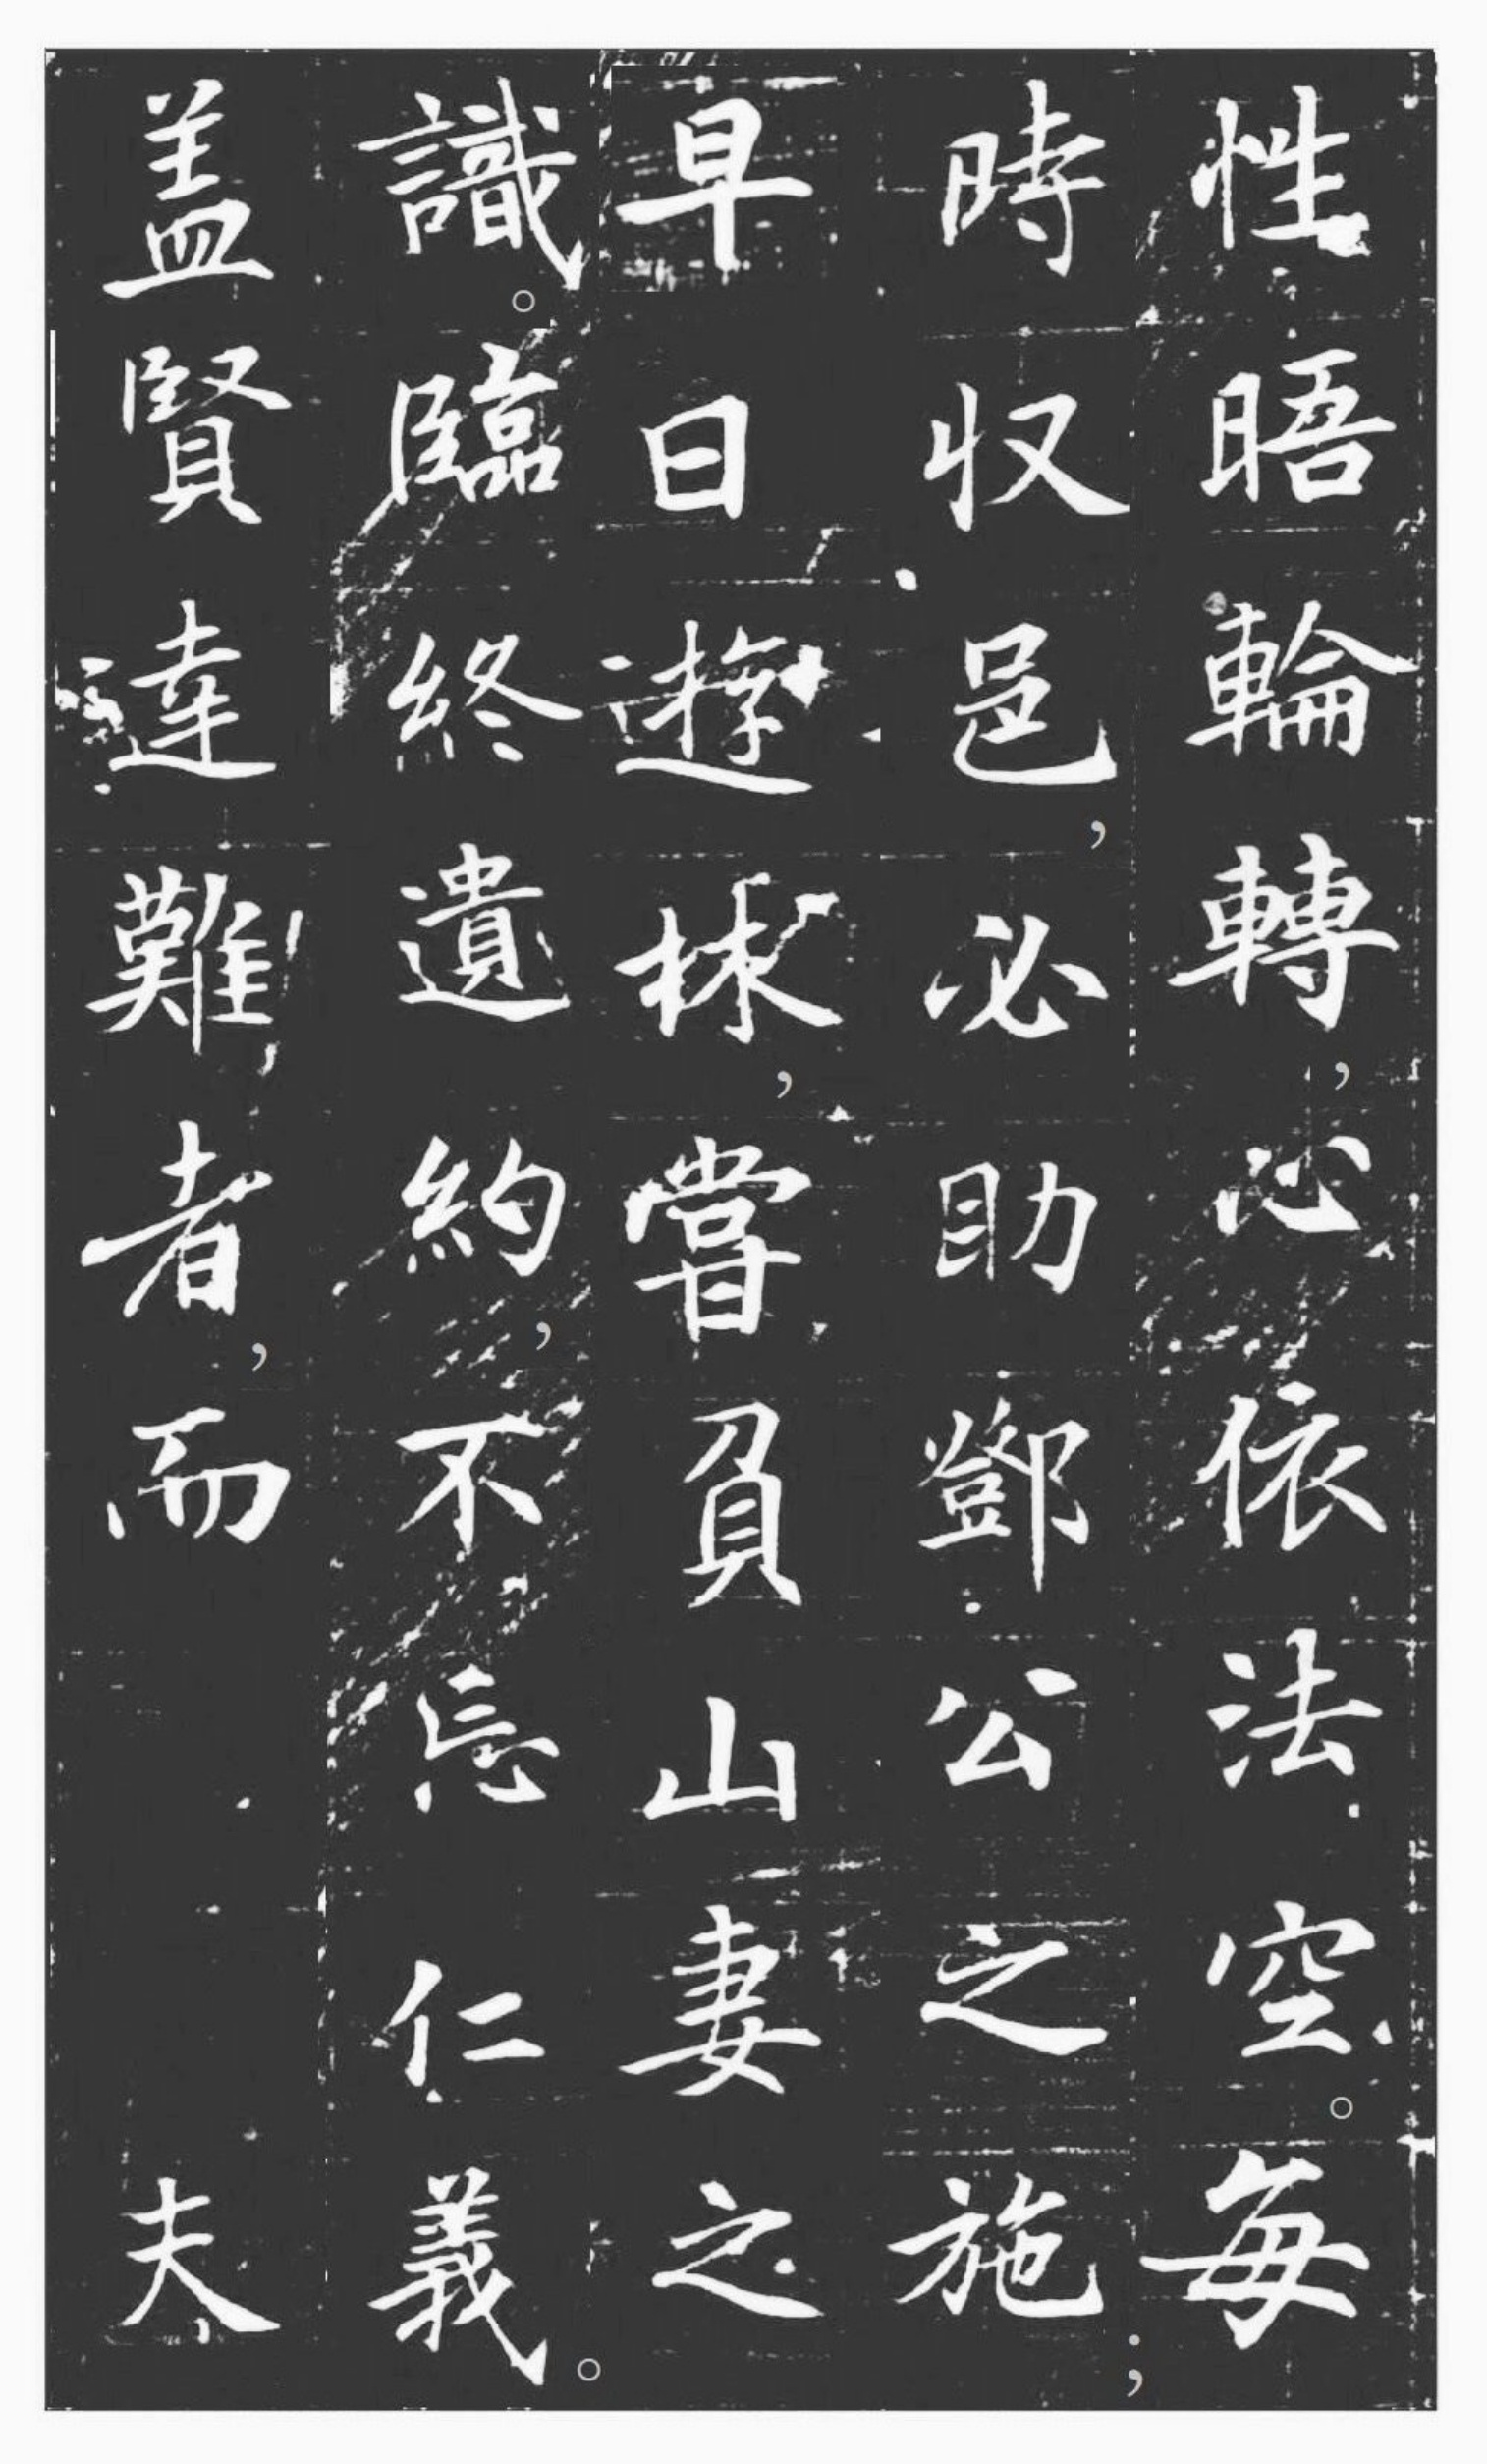 性晤輪轉,心依法空。每
時収邑,必助鄧公之施;
早日遊林,嘗負山妻之
識。臨終遺約,不忘仁義。
盖賢達難者,而夫